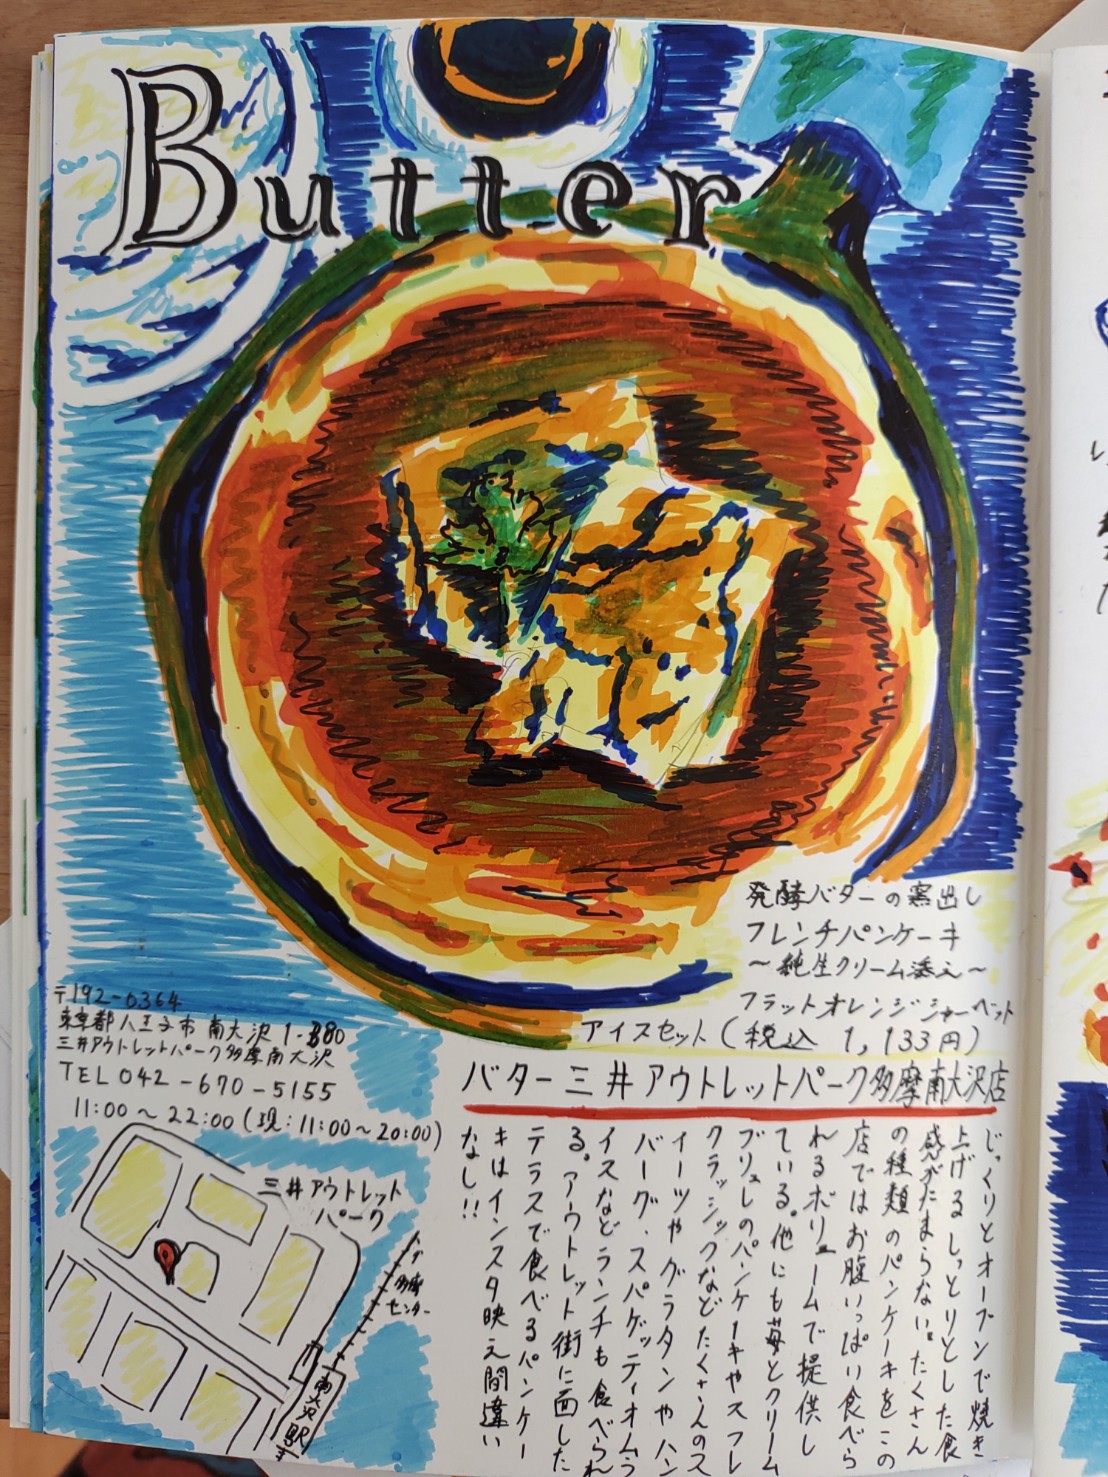 Butter
発酵バターの窯出し
フレンチパンケーキ
〜純生クリーム添え〜
フラットオレンジジャーベット
アイスセット(税込 1,133円)
〒192-0364
東京都八王子市南大沢1-380
三井アウトレットパーク多摩南大沢
TEL042-670-5155
11:00〜22:00(現:11:00〜20:00)
バター三井アウトレットパーク多摩南大沢店
じっくりとオーブンで焼き
上げるしっとりとした食
感がたまらない。たくさん
の種類のパンケーキをこの
店ではお腹いっぱい食べら
れるボリュームで提供し
ている。他にも苺とクリーム
ブリュレのパンケーキやスフレ
クラッシックなどたくさんのス
イーツやグラタンやハン
バーグ、スパゲッティオムラ
イスなどランチも食べられ
る。アウトレット街に面した
テラスで食べるパンケー
キはインスタ映え間違い
なし!!
三井アウトレット
パーク
多摩
センター
南大沢駅